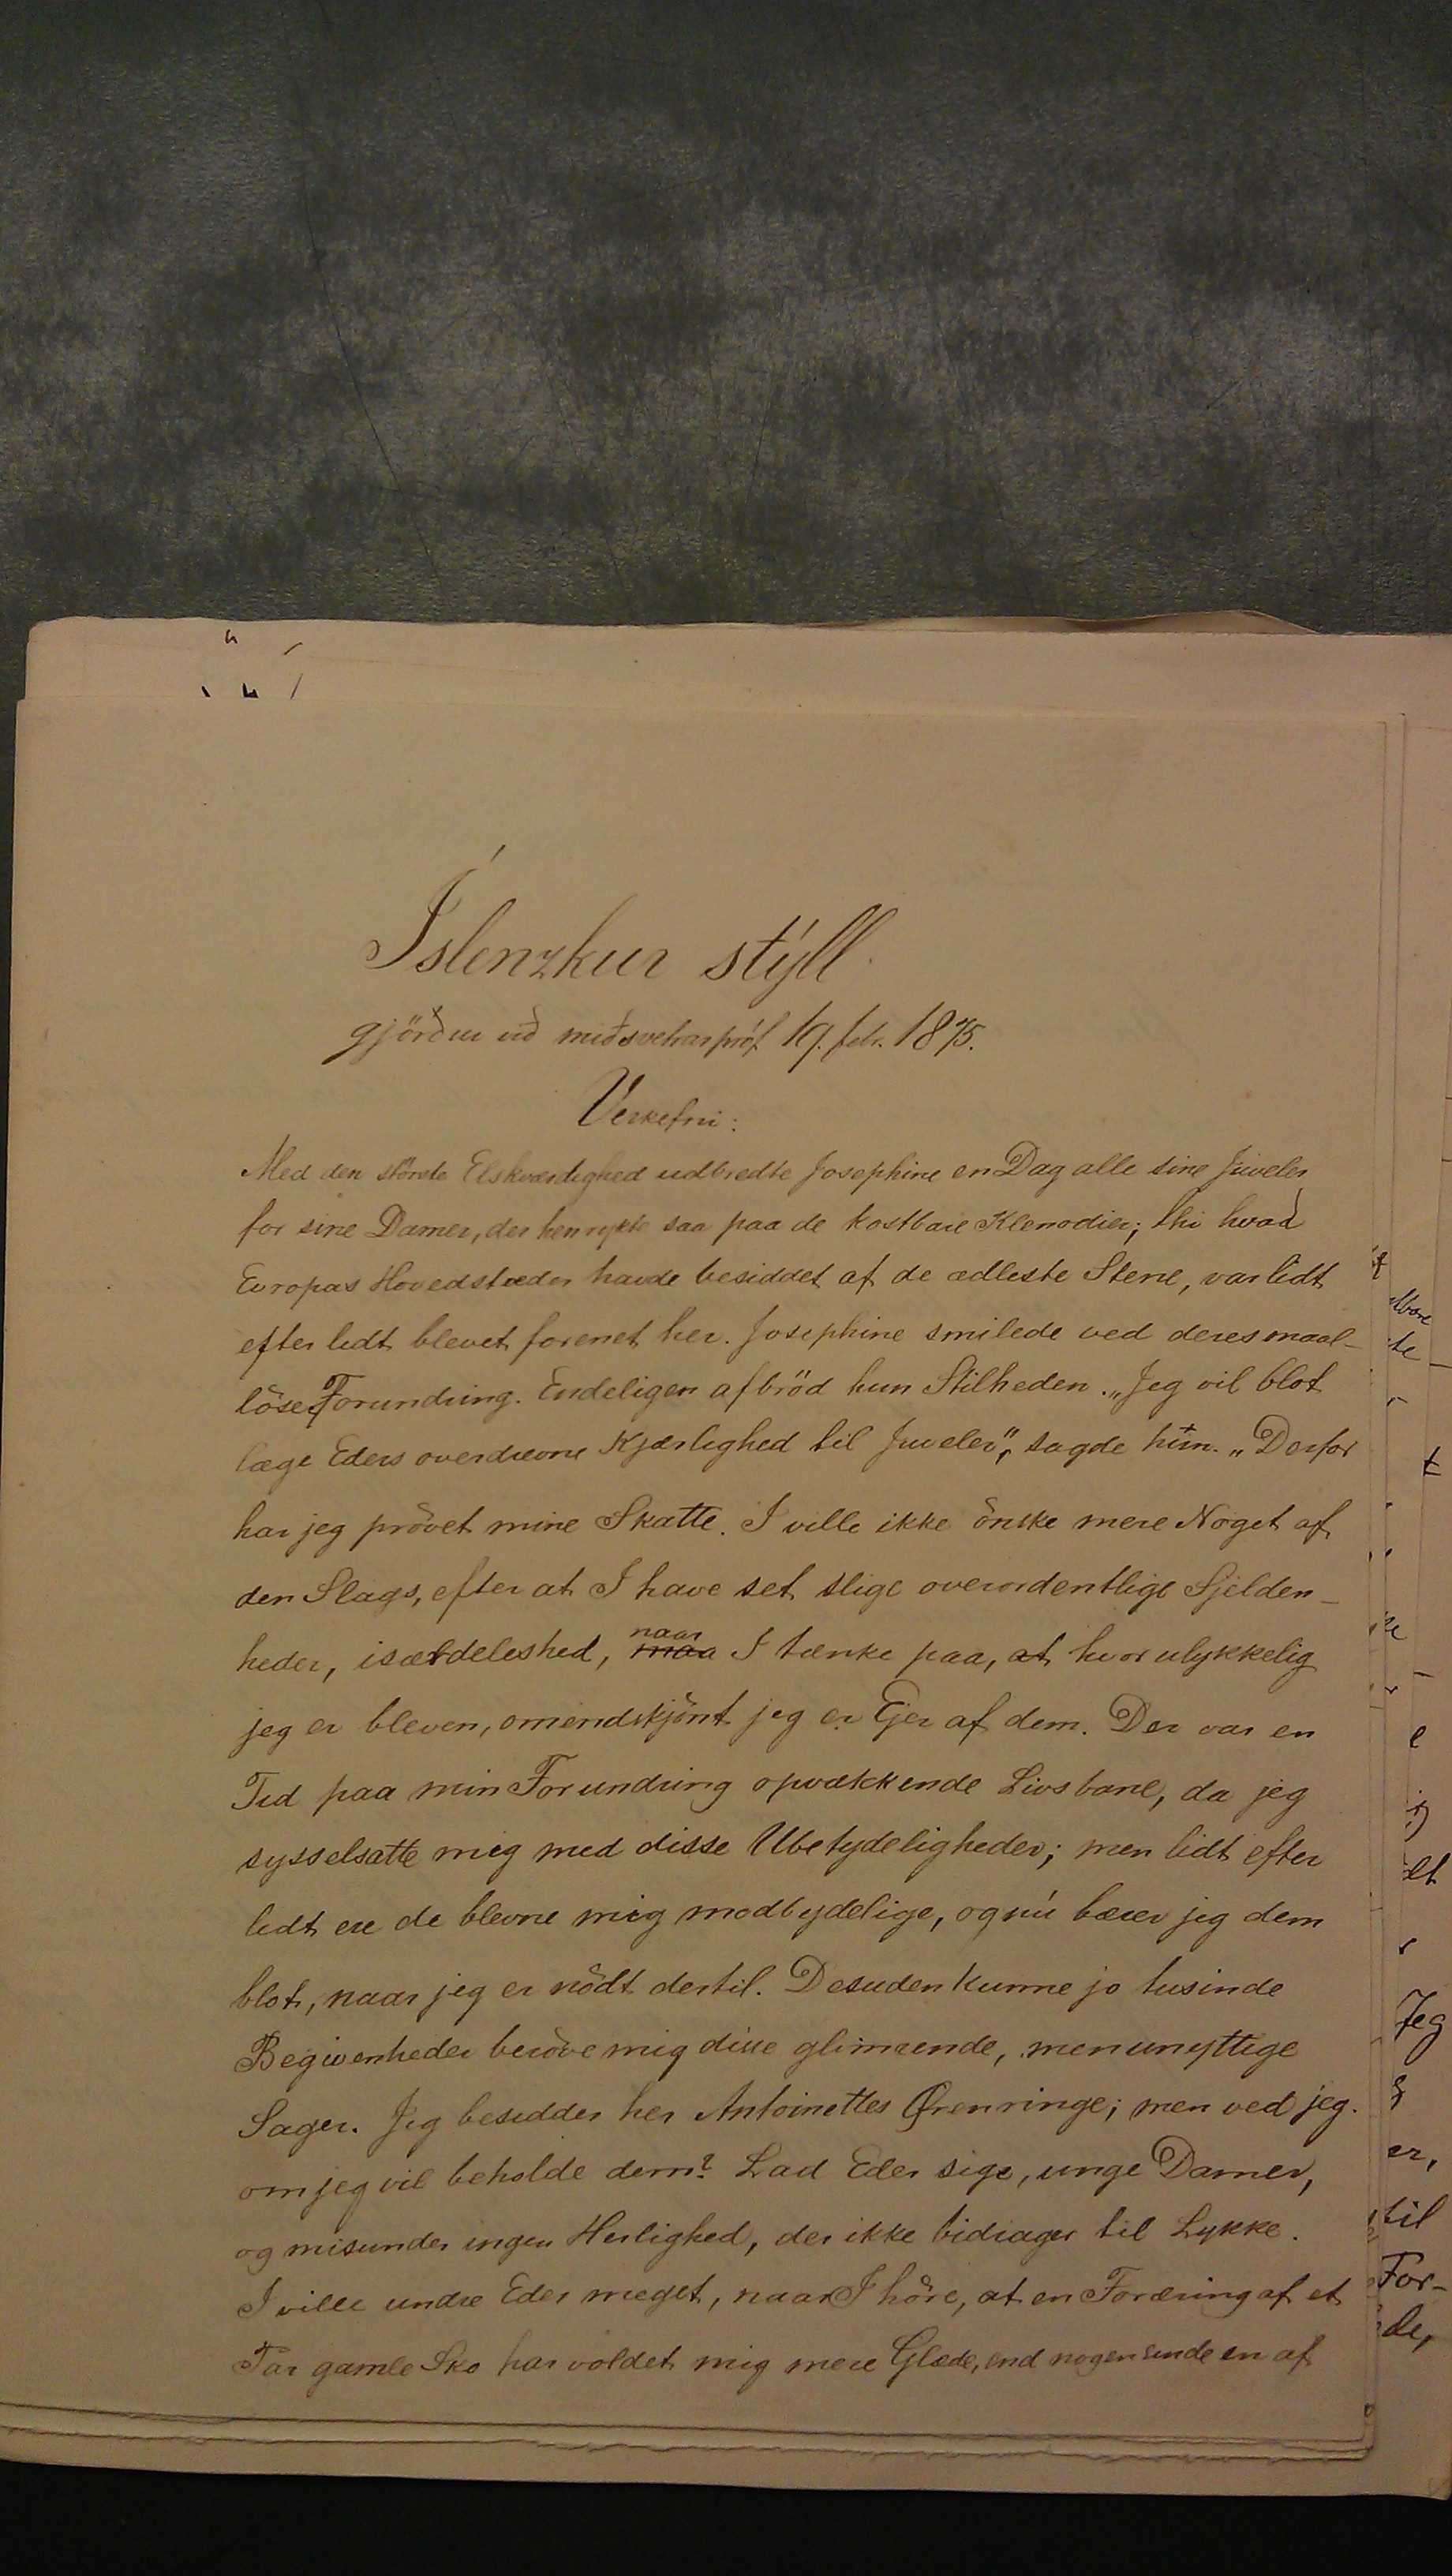 Íslenzkur stýll
gjörður við miðsvetrarpróf 19. febr. 1875.
Verkefni:
Med den störste Elskværdighed udbredte Josephine en Dag alle sine Juveler
for sine Damer, der henrykte saa paa de kostbare Klenodier; thi hvad
Evropas Hovedstæder havde besiddet af de ædleste Stene, var lidt
efter lidt blevet forenet her. Josephine smilede ved deres maal-
löse Forundring. Endeligen afbröd hun Stilheden. „Jeg vil blot
læge Eders overdrevne Kjærlighed til Juveler“, sagde hun. „Derfor
har jeg prövet mine Skatte. I ville ikke önske mere Noget af
den Slags, efter at I have set slige overordentlige Sjelden-
heder, isærdeleshed, naar I tænke paa, at hvor ulykkelig
jeg er bleven, omendskjönt jeg er Ejer af dem. Der var en
Tid paa min Forundring opvækkende Livsbane, da jeg
sysselsatte mig med disse Ubetydeligheder; men lidt efter
lidt ere de blevne mig modbydelige, og nú bærer jeg dem
blot, naar jeg er nödt dertil. Desuden kunne jo tusinde
Begivenheder beröve mig disse glimrende, men unyttige
Sager. Jeg besidder her Antoinettes Ørenringe; men ved jeg.
om jeg vil beholde dem? Lad Eder sige, unge Damer,
og misunder ingen Herlighed, der ikke bidrager til Lykke.
I ville undre Eder meget, naar I höre, at en Foræring af et
Par gamle Sko har voldet mig mere Glæde, end nogensinde en af
Jeg
er,
til
For-
de,